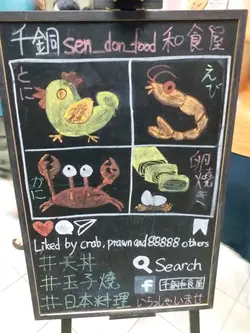 千銅 sen_don_food 和食屋
とに
えび
かに
卵焼き
Liked by crab, prawn and 88888 others
#天丼
Search
#玉子焼
f 千銅和食屋
#日本料理
いらっしゃいませ